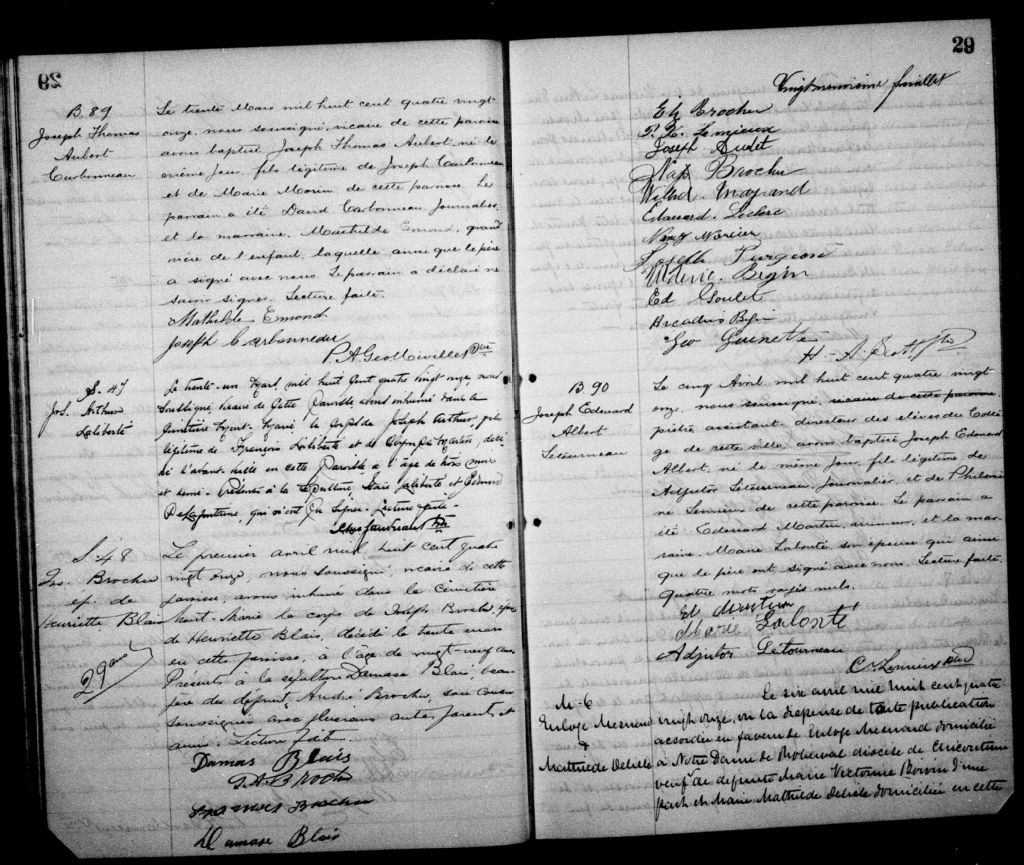 29
B. 89
Joseph Thomas
Aubert
Carbonneau
Le trente Mars mil huit cent quatre vingt
onze, nous soussigné, vicaire de cette paroisse
avons baptisé Joseph Thomas Aubert, né le
même jour, fils légitime de Joseph Carbonneau
et de Marie Morin de cette paroisse. Le
parrain a été David Carbonneau Journalier
et la marraine, Mathilde Emond, grand
mère de l'enfant, laquelle, ainsi que le père
a signé avec nous. Le parrain a déclaré ne
savoir signer. Lecture faite.
Mathilde Emond
Joseph Carbonneau
S. 47
Jos. Arthur
Laliberté
Le trente-un Mars, mil huit cent quatre vingt onze, nous
soussigné vicaire de cette Paroisse avons inhumé dans le
cimetière Mont-Marie le corps de Joseph Arthur, fils
légitime de François Laliberté et de
l'avant veille en cette Paroisse à l'âge de trois mois
et demi. Présents à la sépulture, Laliberté et Edmond
Delafontaine, qui n'ont pu signer. Lecture faite.
S. 48
Jos. Brochu
ép. de
Henriette Blais
29 ans
Le premier avril mil huit cent quatre
vingt onze, nous soussigné, vicaire de cette
paroisse, avons inhumé dans le Cimetière
Mont-Marie le corps de Joseph Brochu, époux
de Henriette Blais, décédé le trente mars
en cette paroisse, à l'âge de vingt-neuf ans
Présents à la sépulture Damase Blais, beau-
père du défunt, André Brochu, son cousin
soussignés avec plusieurs autres parents et
amis. Lecture faite.
Damas Blais
J. A. Brochu
Brochu
Damase Blais
29
Vingt neuvième feuillet
Et Brochu
P. X. Lemieux
Joseph Audet
Nap Brochu
Wilbd. Mayrand
Edouard Leclerc
Mercier
Joseph Turgeon
Ulderic Bégin
Ed Goulet
Arcadius Bégin
Geo Guenette
H. A. Scott Ptre
B 90
Joseph Edouard
Albert
Letourneau
Le cinq Avril mil huit cent quatre vingt
onze, nous soussigné, vicaire de cette paroisse,
prêtre assistant directeur des élèves du Collè
ge de cette ville, avons baptisé Joseph Edouard
Albert, né le même jour, fils légitime de
Adjutor Letourneau, Journalier, et de Philomè
ne Lemieux de cette paroisse. Le parrain a
été Edouard Martin, et la mar-
raine, Marie Labonté son épouse qui ainsi
que le père ont signé avec nous. Lecture faite.
Quatre mots rayés nuls.
Ed Martin
Marie Labonté
Adjutor Letourneau
C. Lemieux Ptre
M-6
Euloge Mesnard
&
Mathilde Delisle
Le six avril mil huit cent quatre
vingt onze, vu la dispense de toute publication
accordée en faveur de Euloge Mesnard domicilié
à Notre Dame de Roberval diocèse de Chicoutimi
veuf de defunte Marie Victorine Boivin d'une
part et Marie Mathilde Delisle domiciliée en cette